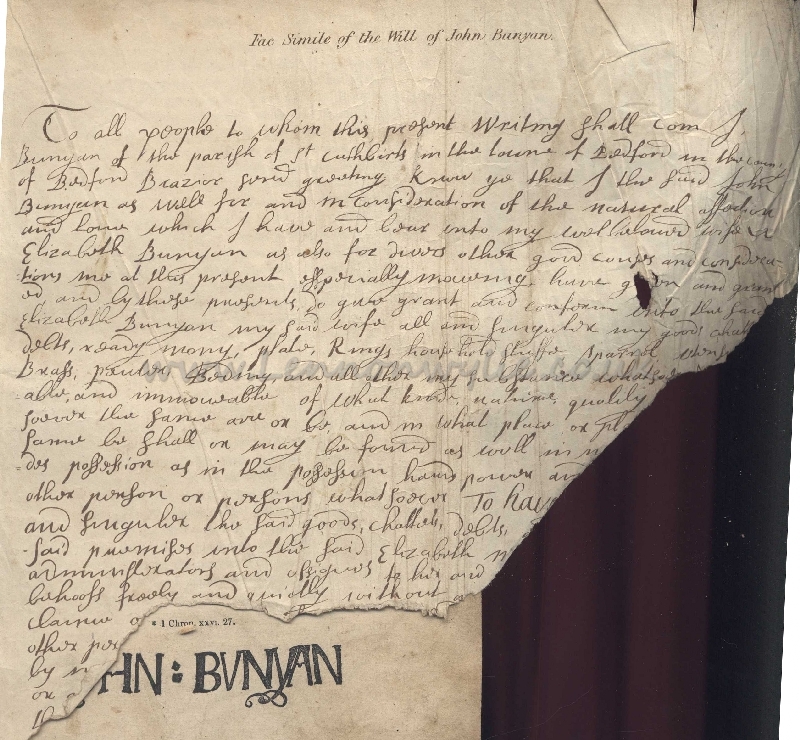 Fac Simile of the Will of John Bunyan.
To all people to whom this present Writing shall com J.
Bunyan of the parish of St Cuthbirts in the towne of Bedford in the coun
of Bedford Brazior send greeting know ye that J the said John
Bunyan as well for and in Consideration of the natural affection
and loue which J have and bear vnto my well beloued wife
Elizabeth Bunyan as also for divers other good Causes and considera
-tions me at this present especially moueing have given and grant
ed, and by these presents, do give grant and conferm vnto the said
Elizabeth Bunyan my said wife all and singuler my goods chatt
debts, ready mony, plate, Rings houshold stuffe Aparrel vtens
Brass, peuter, Beding, and all other my substance whatsoe
-able, and immoueable of what kinde, nature, quality
soever the same are or be, and in what place or pl
same be shall or may be found as well in m
des possession as in the possession hands power an
other person or persons whatsoever To Hav
and singuler the said goods, chattels, debts,
-said premises vnto the said Elizabeth m
administrators and assignes to her and
behoofs freely and quietly without
claime o
* 1 Chron. xxvi. 27.
other per
by
or
th
HN : BVNYAN